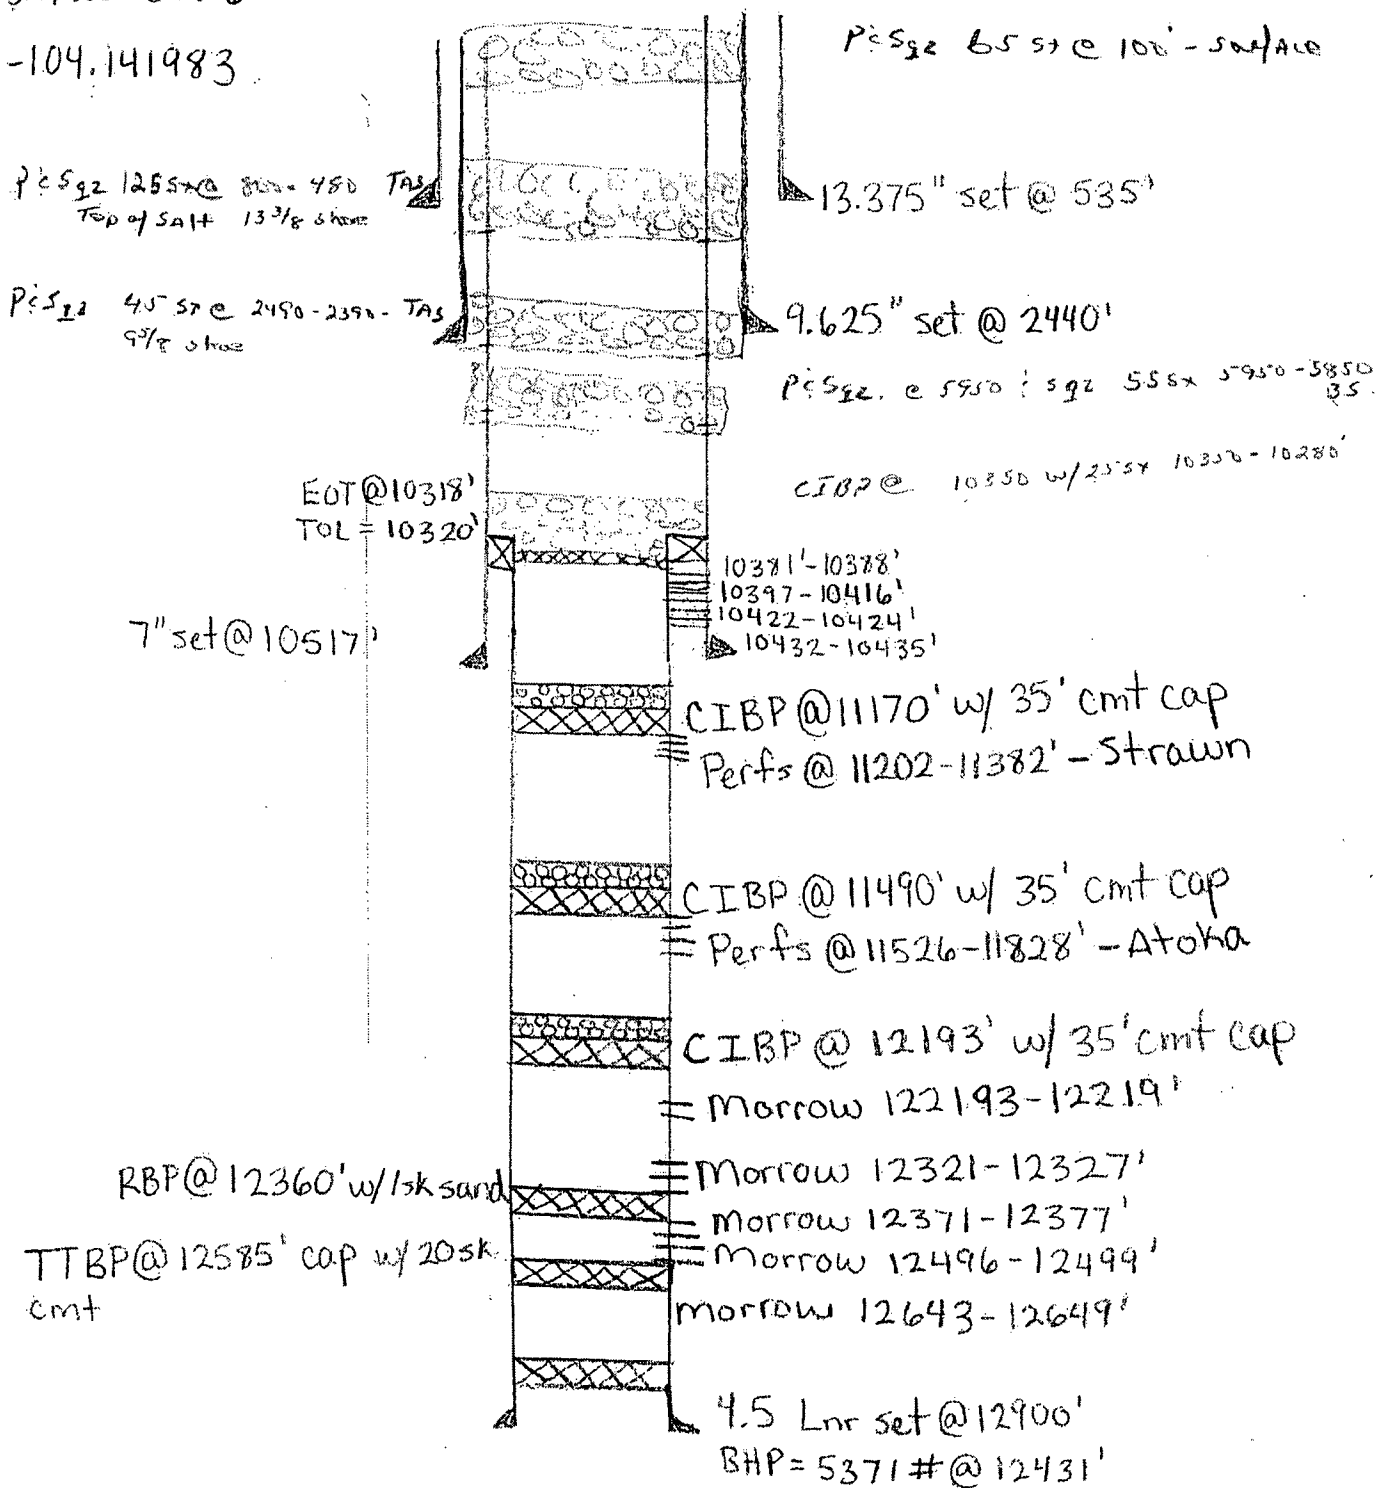 -104.141983
P&Sqz 65 sx @ 100' - Surface
P&Sqz 125sx@ 800-450 TAS
Top of Salt 13 3/8 shoe
13.375" set @ 535'
P&Sqz 45 sx @ 2490-2390- TAS
9 5/8 shoe
9.625" set @ 2440'
P&Sqz. @ 5950 : sqz 55sx 5950-5850
35.
CIBP @ 10350 w/25sx 10350-10280'
EOT@10318'
TOL = 10320'
10381'-10388'
10397-10416'
10422-10424'
10432-10435'
7" set@10517'
CIBP @11170' w/ 35' cmt cap
Perfs @ 11202-11382' - Strawn
CIBP @ 11490' w/ 35' cmt cap
Perfs @ 11526-11828' - Atoka
CIBP @ 12193' w/ 35' cmt cap
Morrow 122193-12219'
RBP@12360' w/1sk sand
Morrow 12321-12327'
Morrow 12371-12377'
TTBP@12585' cap w/ 20sk
cmt
Morrow 12496-12499'
Morrow 12643-12649'
4.5 Lnr set @12900'
BHP = 5371 # @ 12431'